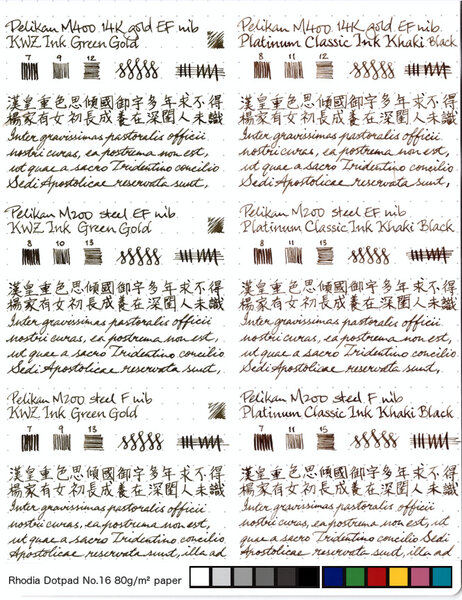 Pelikan M400 14K gold EF nib
KWZ Ink Green Gold
7 9 12
漢皇重色思傾國御宇多年求不得
楊家有女初長成養在深閨人未識
Inter gravissimas pastoralis officii
nostri curas, ea postrema non est,
ut quae a sacro Tridentino concilio
Sedi Apostolicae reservata sunt,
Pelikan M400 14K gold EF nib
Platinum Classic Ink Khaki Black
8 11 12
漢皇重色思傾國御宇多年求不得
楊家有女初長成養在深閨人未識
Inter gravissimas pastoralis officii
nostri curas, ea postrema non est,
ut quae a sacro Tridentino concilio
Sedi Apostolicae reservata sunt,
Pelikan M200 steel EF nib
KWZ Ink Green Gold
8 10 13
漢皇重色思傾國御宇多年求不得
楊家有女初長成養在深閨人未識
Inter gravissimas pastoralis officii
nostri curas, ea postrema non est,
ut quae a sacro Tridentino concilio
Sedi Apostolicae reservata sunt,
Pelikan M200 steel EF nib
Platinum Classic Ink Khaki Black
8 11 13
漢皇重色思傾國御宇多年求不得
楊家有女初長成養在深閨人未識
Inter gravissimas pastoralis officii
nostri curas, ea postrema non est,
ut quae a sacro Tridentino concilio
Sedi Apostolicae reservata sunt,
Pelikan M200 steel F nib
KWZ Ink Green Gold
7 9 13
漢皇重色思傾國御宇多年求不得
楊家有女初長成養在深閨人未識
Inter gravissimas pastoralis officii
nostri curas, ea postrema non est,
ut quae a sacro Tridentino concilio Sedi
Apostolicae reservata sunt, illa ad
Pelikan M200 steel F nib
Platinum Classic Ink Khaki Black
7 11 15
漢皇重色思傾國御宇多年求不得
楊家有女初長成養在深閨人未識
Inter gravissimas pastoralis officii
nostri curas, ea postrema non est,
ut quae a sacro Tridentino concilio Sedi
Apostolicae reservata sunt, illa ad
Rhodia Dotpad No.16 80g/m² paper